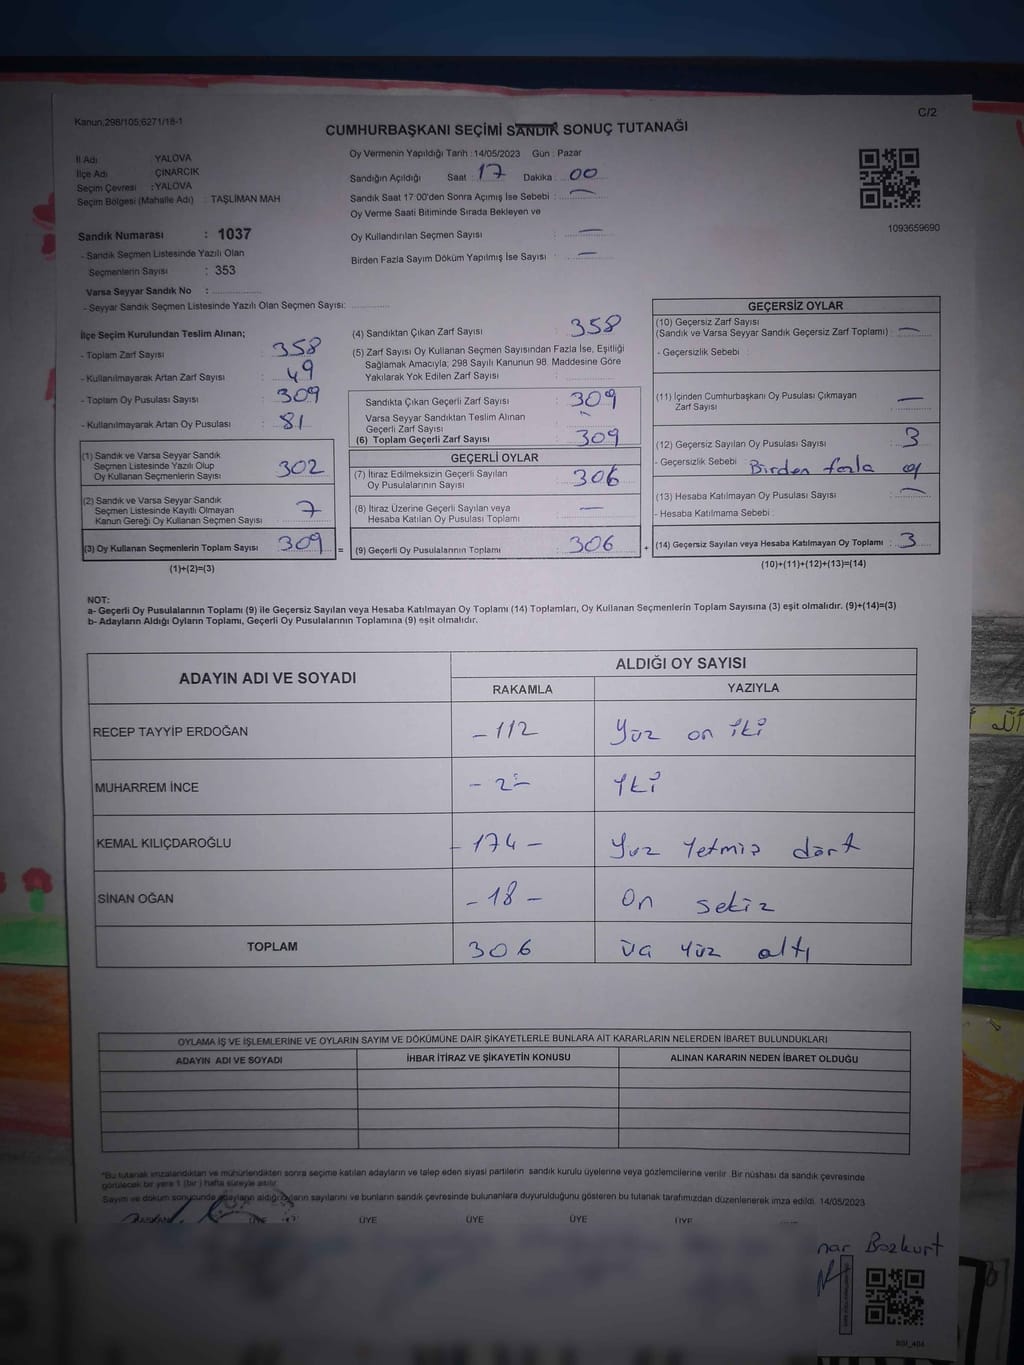 Kanun:298/105:6271/18-1
C/2
CUMHURBAŞKANI SEÇİMİ SANDIK SONUÇ TUTANAĞI
İl Adı : YALOVA
İlçe Adı : ÇINARCIK
Seçim Çevresi : YALOVA
Seçim Bölgesi (Mahalle Adı) : TAŞLIMAN MAH
Oy Vermenin Yapıldığı Tarih : 14/05/2023 Gün : Pazar
Sandığın Açıldığı Saat : 17 Dakika : 00
Sandık Saat 17:00'den Sonra Açımış İse Sebebi : —
Oy Verme Saati Bitiminde Sırada Bekleyen ve
Oy Kullandırılan Seçmen Sayısı : —
Birden Fazla Sayım Döküm Yapılmış İse Sayısı : —
1093659690
Sandık Numarası : 1037
- Sandık Seçmen Listesinde Yazılı Olan
Seçmenlerin Sayısı : 353
Varsa Seyyar Sandık No :
- Seyyar Sandık Seçmen Listesinde Yazılı Olan Seçmen Sayısı:
İlçe Seçim Kurulundan Teslim Alınan;
- Toplam Zarf Sayısı : 358
- Kullanılmayarak Artan Zarf Sayısı : 49
- Toplam Oy Pusulası Sayısı : 309
- Kullanılmayarak Artan Oy Pusulası : 81
(1) Sandık ve Varsa Seyyar Sandık
Seçmen Listesinde Yazılı Olup
Oy Kullanan Seçmenlerin Sayısı : 302
(2) Sandık ve Varsa Seyyar Sandık
Seçmen Listesinde Kayıtlı Olmayan
Kanun Gereği Oy Kullanan Seçmen Sayısı : 7
(3) Oy Kullanan Seçmenlerin Toplam Sayısı : 309 =
(1)+(2)=(3)
(4) Sandıktan Çıkan Zarf Sayısı : 358
(5) Zarf Sayısı Oy Kullanan Seçmen Sayısından Fazla İse, Eşitliği
Sağlamak Amacıyla; 298 Sayılı Kanunun 98. Maddesine Göre
Yakılarak Yok Edilen Zarf Sayısı :
Sandıkta Çıkan Geçerli Zarf Sayısı : 309
Varsa Seyyar Sandıktan Teslim Alınan
Geçerli Zarf Sayısı :
(6) Toplam Geçerli Zarf Sayısı : 309
GEÇERLİ OYLAR
(7) İtiraz Edilmeksizin Geçerli Sayılan
Oy Pusulalarının Sayısı : 306
(8) İtiraz Üzerine Geçerli Sayılan veya
Hesaba Katılan Oy Pusulası Toplamı : —
(9) Geçerli Oy Pusulalarının Toplamı : 306 +
GEÇERSİZ OYLAR
(10) Geçersiz Zarf Sayısı
(Sandık ve Varsa Seyyar Sandık Geçersiz Zarf Toplamı) : —
- Geçersizlik Sebebi :
(11) İçinden Cumhurbaşkanı Oy Pusulası Çıkmayan
Zarf Sayısı : —
(12) Geçersiz Sayılan Oy Pusulası Sayısı : 3
- Geçersizlik Sebebi : Birden fazla oy
(13) Hesaba Katılmayan Oy Pusulası Sayısı : —
- Hesaba Katılmama Sebebi :
(14) Geçersiz Sayılan veya Hesaba Katılmayan Oy Toplamı : 3
(10)+(11)+(12)+(13)=(14)
NOT:
a- Geçerli Oy Pusulalarının Toplamı (9) ile Geçersiz Sayılan veya Hesaba Katılmayan Oy Toplamı (14) Toplamları, Oy Kullanan Seçmenlerin Toplam Sayısına (3) eşit olmalıdır. (9)+(14)=(3)
b- Adayların Aldığı Oyların Toplamı, Geçerli Oy Pusulalarının Toplamına (9) eşit olmalıdır.
ADAYIN ADI VE SOYADI
ALDIĞI OY SAYISI
RAKAMLA YAZIYLA
RECEP TAYYİP ERDOĞAN - 112 Yüz on iki
MUHARREM İNCE - 2 - iki
KEMAL KILIÇDAROĞLU - 174 - Yuz Yetmiş dört
SİNAN OĞAN - 18 - On sekiz
TOPLAM 306 üç yüz altı
OYLAMA İŞ VE İŞLEMLERİNE VE OYLARIN SAYIM VE DÖKÜMÜNE DAİR ŞİKAYETLERLE BUNLARA AİT KARARLARIN NELERDEN İBARET BULUNDUKLARI
ADAYIN ADI VE SOYADI İHBAR İTİRAZ VE ŞİKAYETİN KONUSU ALINAN KARARIN NEDEN İBARET OLDUĞU
*Bu tutanak imzalandıktan ve mühürlendikten sonra seçime katılan adayların ve talep eden siyasi partilerin sandık kurulu üyelerine veya gözlemcilerine verilir. Bir nüshası da sandık çevresinde
görülecek bir yere 1 (bir) hafta süreyle asılır.
Sayım ve döküm sonucunda adayların aldığı oyların sayılarını ve bunların sandık çevresinde bulunanlara duyurulduğunu gösteren bu tutanak tarafımızdan düzenlenerek imza edildi. 14/05/2023
BAŞKAN ÜYE ÜYE ÜYE ÜYE ÜYE
Bozkurt